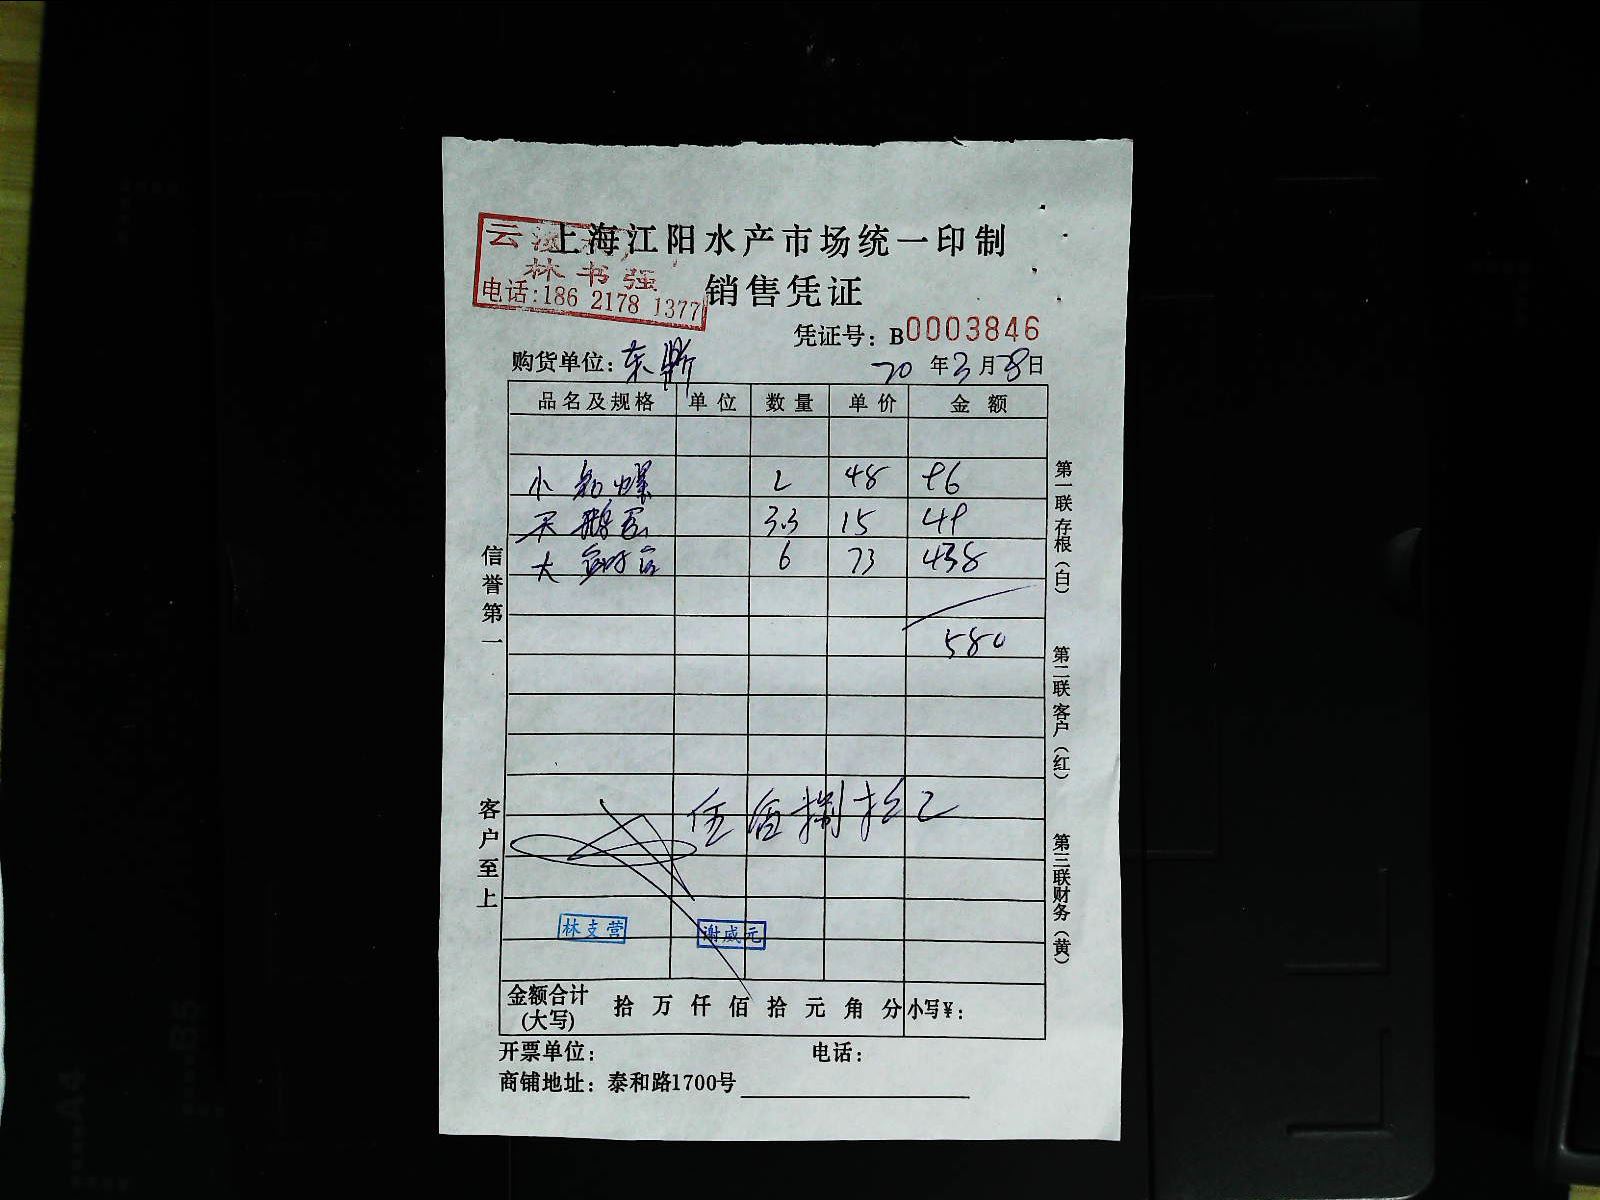 上海江阳水产市场统一印制
云
林书强
电话:186 2178 1377
销售凭证
凭证号: B0003846
购货单位: 东鼎
20 年 3 月 28 日
品名及规格 单位 数量 单价 金额
小 螺 2 48 96
天鹅蛋 3.3 15 49
大 6 73 438
580
伍佰捌拾
林支营 谢威元
金额合计(大写) 拾 万 仟 佰 拾 元 角 分 小写¥:
开票单位: 电话:
商铺地址: 泰和路1700号
信誉第一
客户至上
第一联 存根(白)
第二联 客户(红)
第三联 财务(黄)